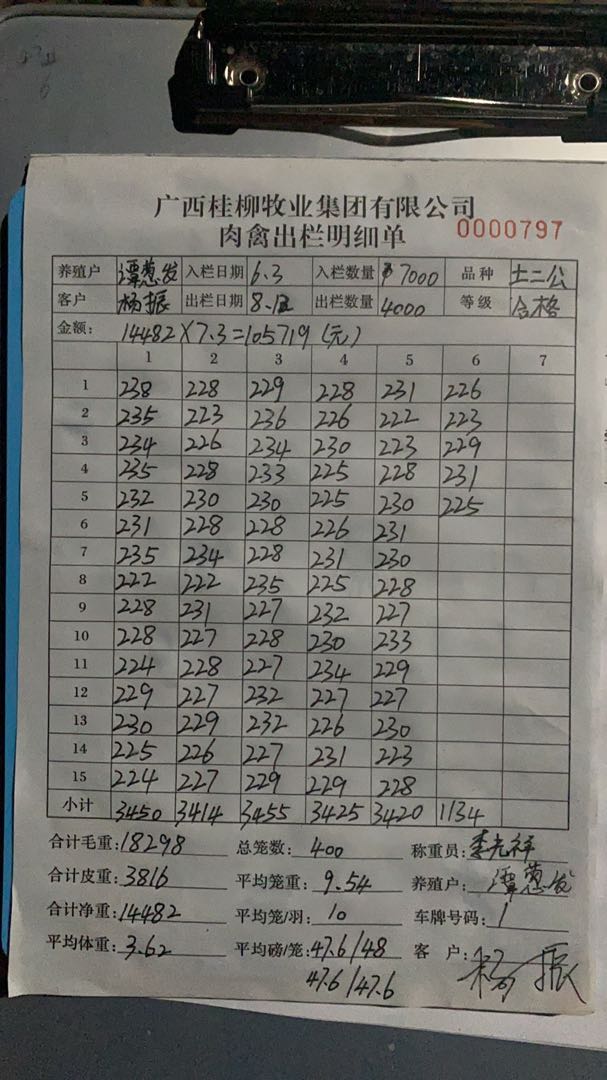 广西桂柳牧业集团有限公司
肉禽出栏明细单 0000797
养殖户 谭葱发 入栏日期 6.3 入栏数量 7000 品种 土二公
客户 杨振 出栏日期 8.12 出栏数量 4000 等级 合格
金额: 14482×7.3=105719(元)
1 2 3 4 5 6 7
1 238 228 229 228 231 226
2 235 223 236 226 222 223
3 234 226 234 230 223 229
4 235 228 233 225 228 231
5 232 230 230 225 230 225
6 231 228 228 226 231
7 235 234 228 231 230
8 222 222 235 225 228
9 228 231 227 232 227
10 228 227 228 230 233
11 224 228 227 234 229
12 229 227 232 227 227
13 230 229 232 226 230
14 225 226 227 231 223
15 224 227 229 229 228
小计 3450 3414 3455 3425 3420 1134
合计毛重:18298 总笼数: 400 称重员:李光祥
合计皮重:3816 平均笼重: 9.54 养殖户: 谭葱发
合计净重:14482 平均笼/羽: 10 车牌号码: 1
平均体重: 3.62 平均磅/笼:47.6/48 客 户:杨振
47.6/47.6